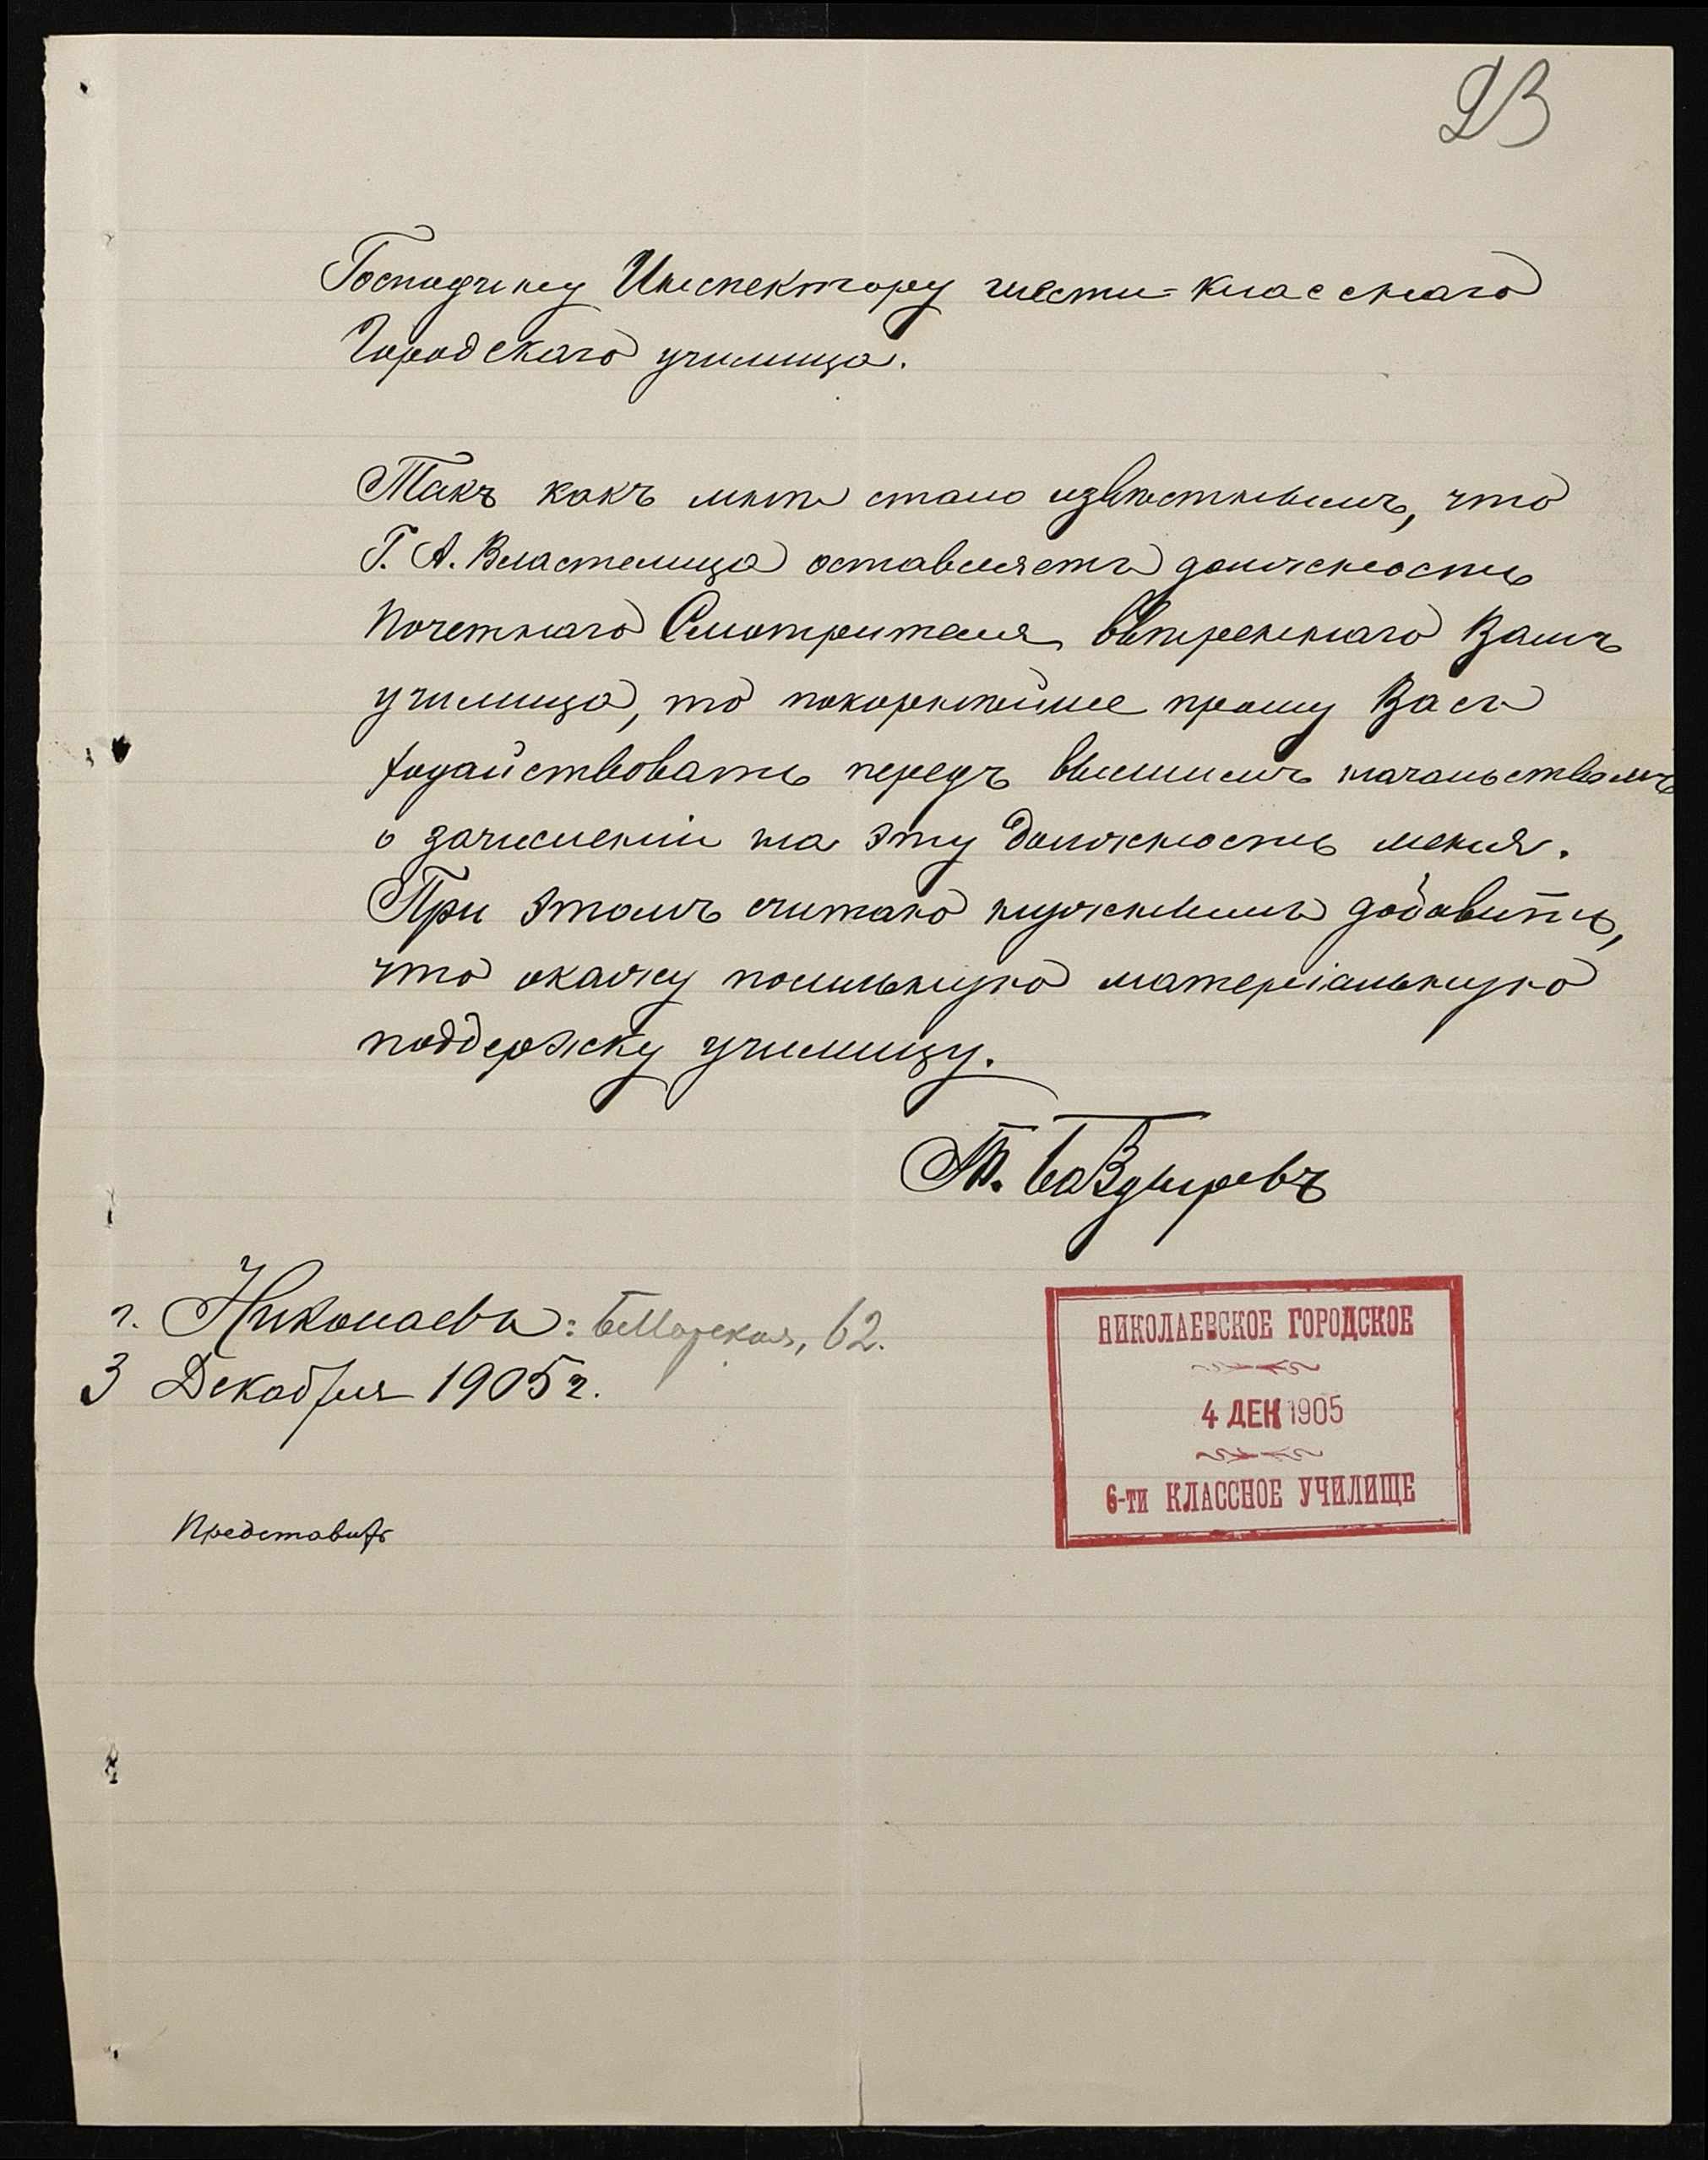 23
Господину Инспектору шести-класснаго
Городскаго училища.
Такъ какъ мнѣ стало извѣстнымъ, что
Г. А. Властелица оставляетъ должность
Почетнаго Смотрителя ввѣреннаго Вамъ
училища, то покорнѣйше прошу Васъ
ходайствовать передъ высшимъ начальствомъ
о зачисленіи на эту должность меня.
При этомъ считаю нужнымъ добавить,
что окажу посильную матеріальную
поддержку училищу.
Т. Баздыревъ
г. Николаевъ: Б. Морская, 62.
3 Декабря 1905 г.
НИКОЛАЕВСКОЕ ГОРОДСКОЕ
4 ДЕК 1905
6-ти КЛАССНОЕ УЧИЛИЩЕ
Представить